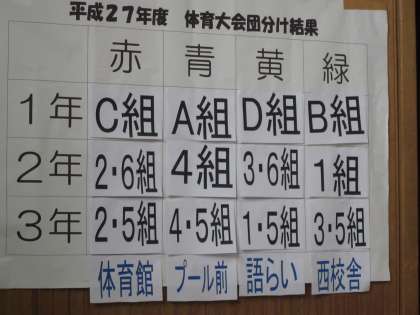 平成27年度 体育大会団分け結果
赤 青 黄 緑
1年 C組 A組 D組 B組
2年 2・6組 4組 3・6組 1組
3年 2・5組 4・5組 1・5組 3・5組
体育館 プール前 語らい 西校舎